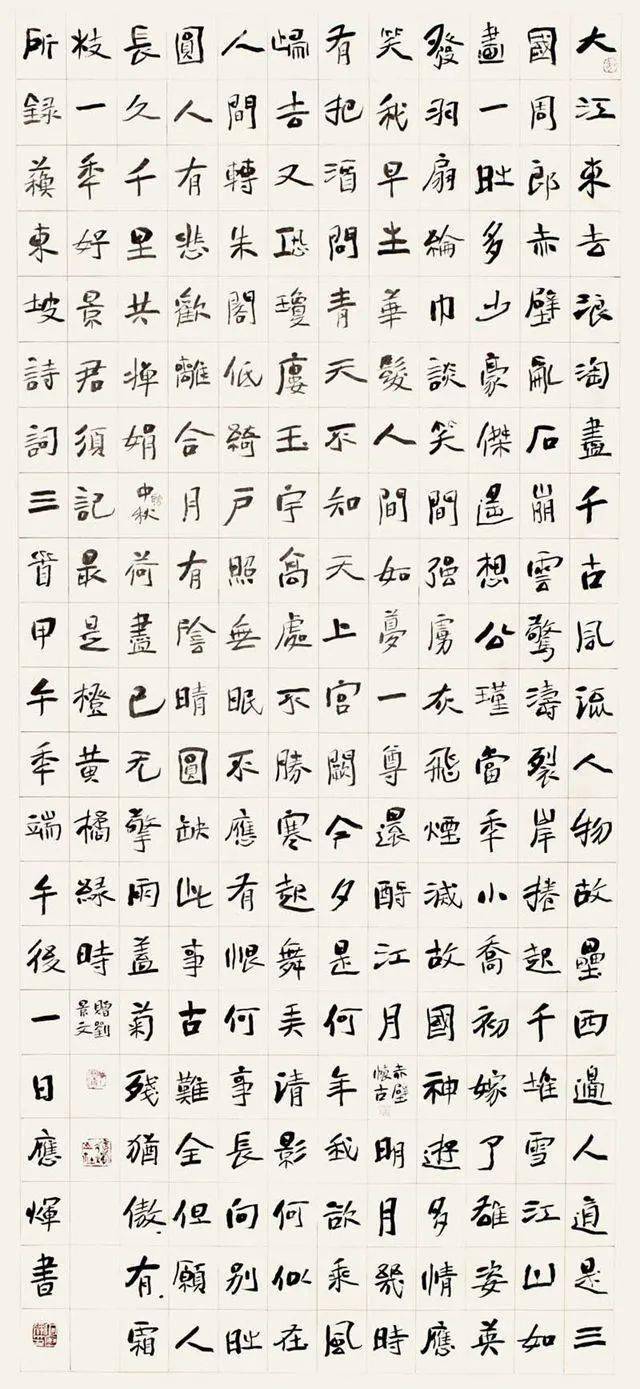 大江東去浪淘盡千古風流人物故壘西邊人道是三
國周郎赤壁亂石崩雲驚濤裂岸捲起千堆雪江山如
畫一時多少豪傑遥想公瑾當年小喬初嫁了雄姿英
發羽扇綸巾談笑間强虜灰飛煙滅故國神遊多情應
笑我早生華髮人間如夢一尊還酹江月赤壁懷古明月幾時
有把酒問青天不知天上宮闕今夕是何年我欲乘風
歸去又恐瓊樓玉宇高處不勝寒起舞弄清影何似在
人間轉朱閣低綺戶照無眠不應有恨何事長向別時
圓人有悲歡離合月有陰晴圓缺此事古難全但願人
長久千里共嬋娟中秋荷盡已无擎雨蓋菊殘猶傲有霜
枝一年好景君須記最是橙黄橘綠時贈劉景文
所録蘇東坡詩詞三首甲午年端午後一日應煇書